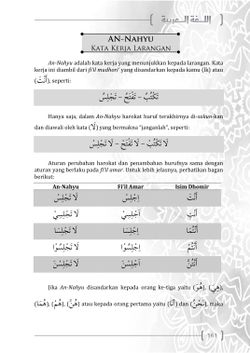 اللغة العربية
AN-NAHYU
KATA KERJA LARANGAN
An-Nahyu adalah kata kerja yang menunjukkan kepada larangan. Kata
kerja ini diambil dari fi'il mudhari' yang disandarkan kepada kamu (lk) atau
(أَنْتَ), seperti:
تَكْتُبُ – تَفْتَحُ – تَجْلِسُ
Hanya saja, dalam An-Nahyu harokat huruf terakhirnya di-sukun-kan
dan diawali oleh kata (لَا) yang bermakna "janganlah", seperti:
لَا تَكْتُبْ – لَا تَفْتَحْ – لَا تَجْلِسْ
Aturan perubahan harokat dan penambahan hurufnya sama dengan
aturan yang berlaku pada fi'il amar. Untuk lebih jelasnya, perhatikan bagan
berikut:
An-Nahyu Fi'il Amar Isim Dhomir
لَا تَجْلِسْ اِجْلِسْ أَنْتَ
لَا تَجْلِسِيْ اِجْلِسِيْ أَنْتِ
لَا تَجْلِسَا اِجْلِسَا أَنْتُمَا
لَا تَجْلِسُوْا اِجْلِسُوْا أَنْتُمْ
لَا تَجْلِسْنَ اِجْلِسْنَ أَنْتُنَّ
Jika An-Nahyu disandarkan kepada orang ke-tiga yaitu (هُوَ), (هِيَ),
(هُمَا), (هُمْ), (هُنَّ) atau kepada orang pertama yaitu (أَنَا) dan (نَحْنُ), maka
161